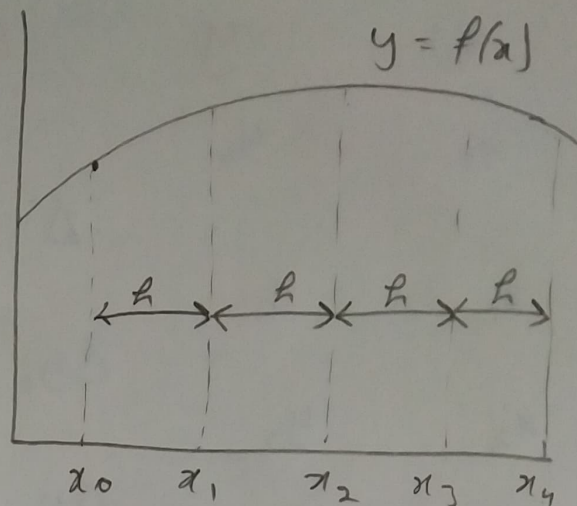 y = f(x)
h h h h
x₀ x₁ x₂ x₃ x₄